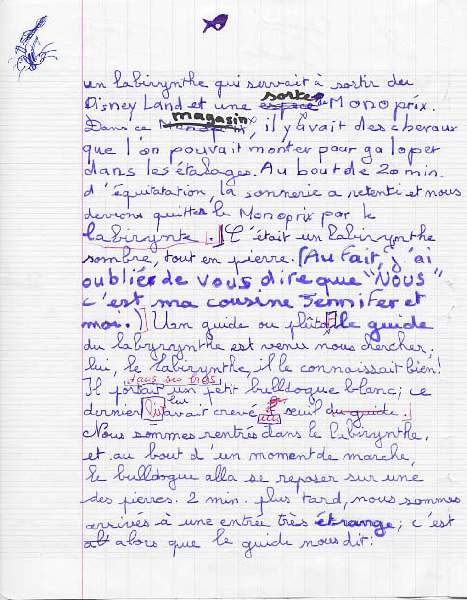 un labirynthe qui servait à sortir du
Disney Land et une espace sorte de Monoprix.
Dans ce Monoprix magasin, il y avait des chevaux
que l'on pouvait monter pour galoper
dans les étalages. Au bout de 20 min.
d'équitatation la sonnerie a retenti et nous
devions quitter le Monoprix par le
labirynte. C'était un labirynthe
sombre, tout en pierre. (Au fait, j'ai
oublié de vous dire que "NOUS"
c'est ma cousine Jennifer et
moi.) Un guide ou plûtot le guide
du labyrynthe est venu nous chercher,
lui, le labirynthe, il le connaissait bien!
dans ses bras
Il portait un petit bulldogue blanc; ce
dernier lui avait crevé seuil du guide.
Nous sommes rentrés dans le labirynthe.
et au bout d'un moment de marche,
le bulldogue alla se reposer sur une
des pierres. 2 min. plus tard, nous sommes
arrivés à une entrée très étrange; c'est
alors que le guide nous dit: